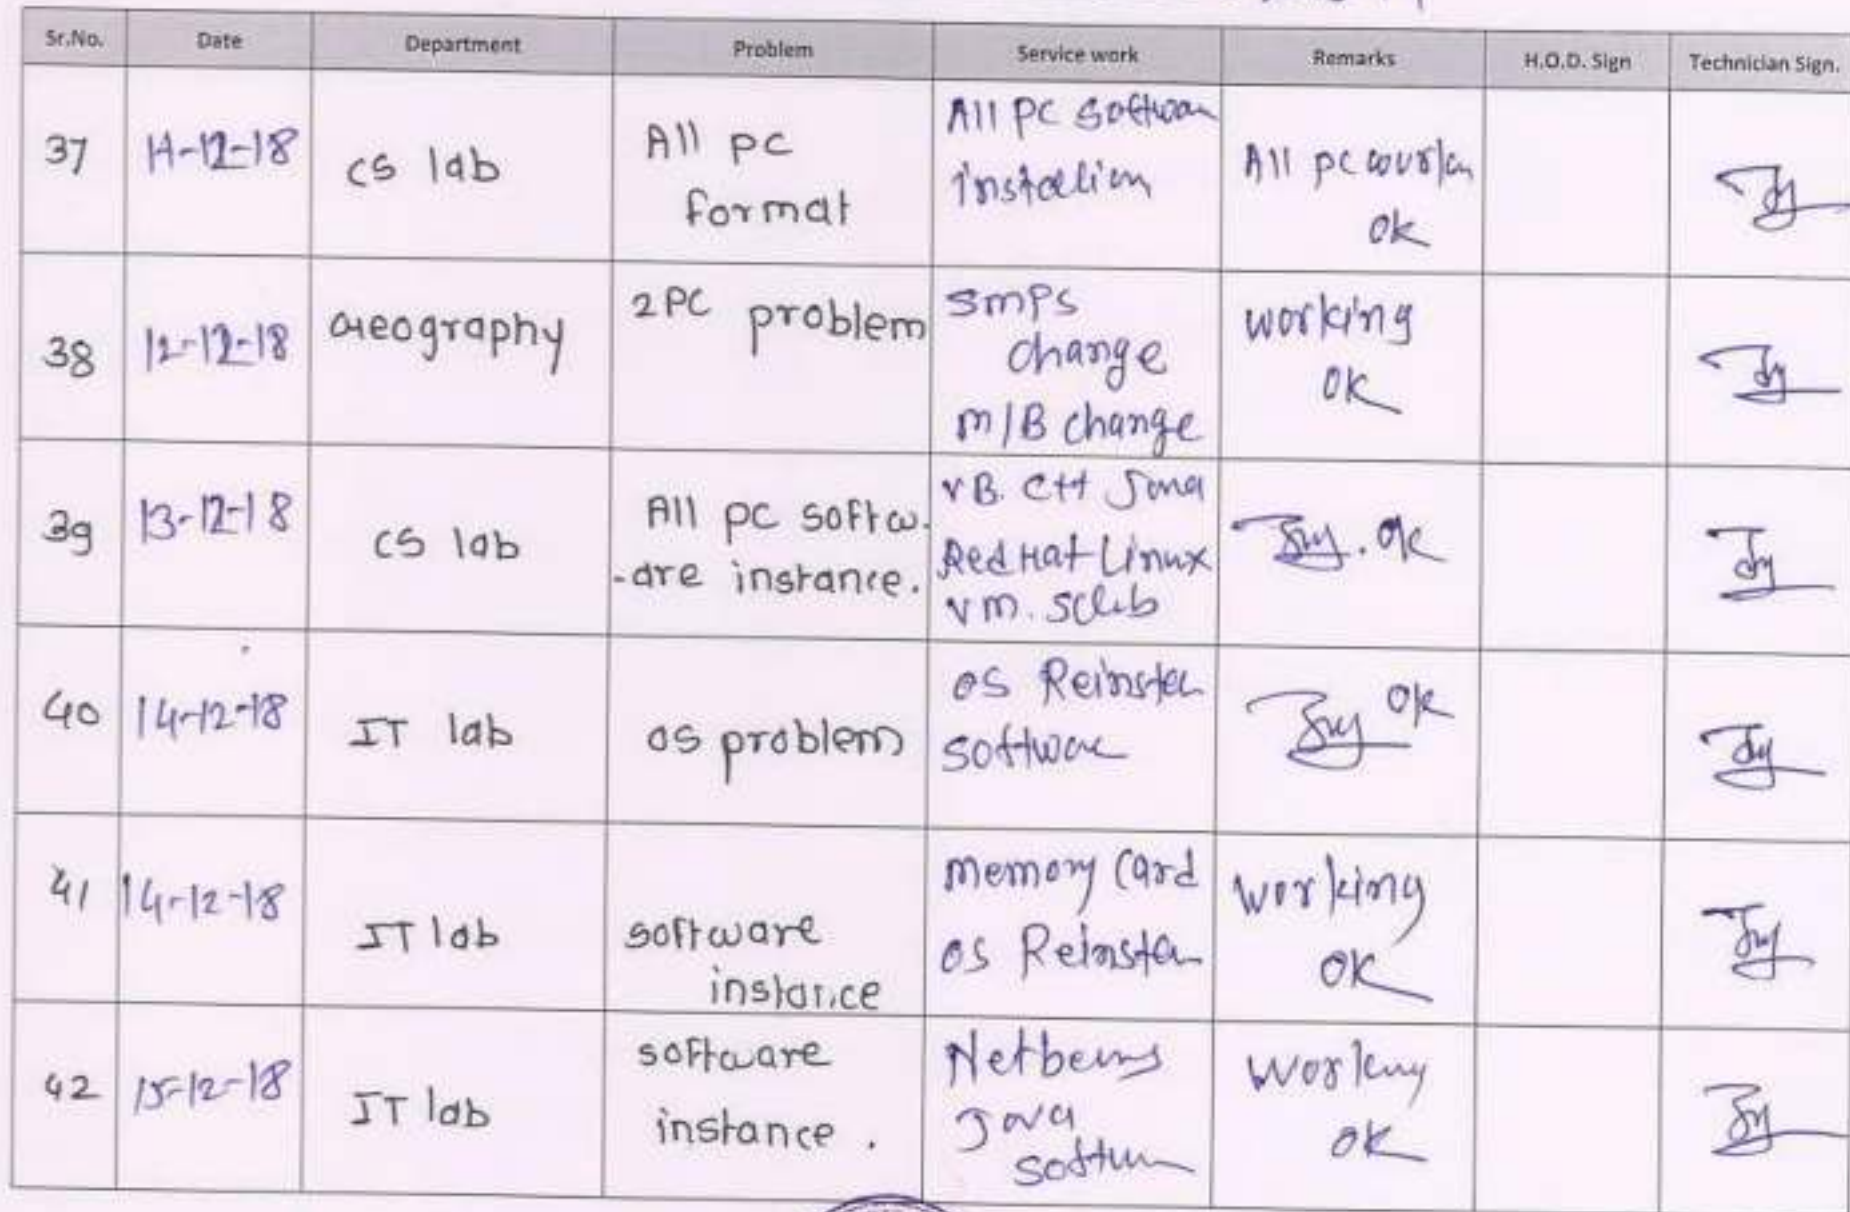 Sr.No. Date Department Problem Service work Remarks H.O.D. Sign Technician Sign.
37 11-12-18 CS lab All pc format All PC Softwar installion All pc workin ok
38 12-12-18 Geography 2PC problem SMPS change M/B change working ok
39 13-12-18 CS lab All pc softw.-are instance. VB. C++ Java Red Hat Linux VM. Scilab ok
40 14-12-18 IT lab OS problem OS Reinstall software ok
41 14-12-18 IT lab software instance Memory Card OS Reinstall working ok
42 15-12-18 IT lab software instance. Netbeans Java software working ok